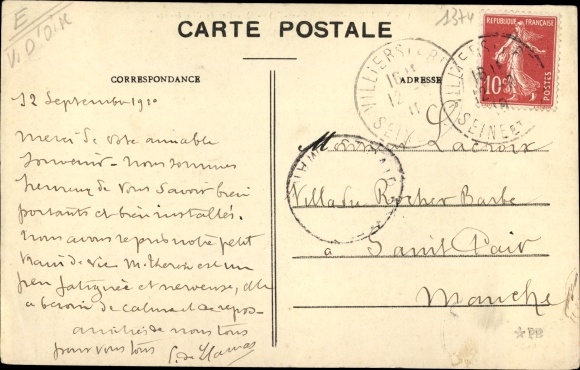 E
V. D'O.K
1374
CARTE POSTALE
CORRESPONDANCE
ADRESSE
REPUBLIQUE FRANÇAISE
10
POSTES
VILLIERS
SEINE ET
12 Septembre 1910
Merci de votre aimable
souvenir - nous sommes
heureux de vous savoir bien
portants et bien installés.
Nous avons repris notre petit
train de vie M. Thérèse est un
peu fatiguée et nerveuse, elle
a besoin de calme et de repos -
amitiés de nous tous
pour vous tous
Monsieur Lacroix
Villa du Rocher Barbe
à Saint Pair
Manche